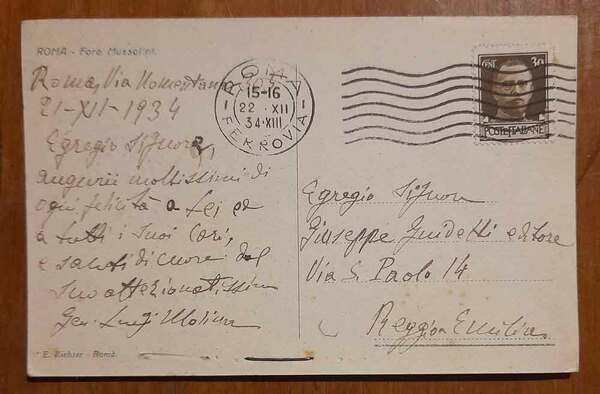 ROMA - Foro Mussolini.
Roma, Via Nomentana
21-XII-1934
Egregio Signore,
augurii moltissimi di
ogni felicità a Lei et
a tutti i suoi Cari,
e saluti di cuore dal
suo affezionatissimo
Gen. Luigi
E. Richter - Roma.
ROMA
15-16
22 XII
34·XIII
FERROVIA
CENT. 30
POSTE ITALIANE
Egregio Signor
Giuseppe Guidetti editore
Via S. Paolo 14
Reggio Emilia